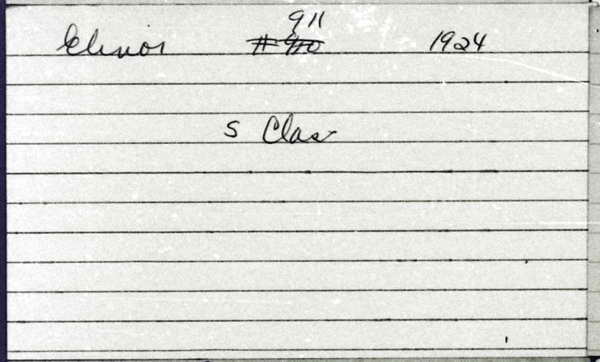 911
Elinor # 910 1924
S Class